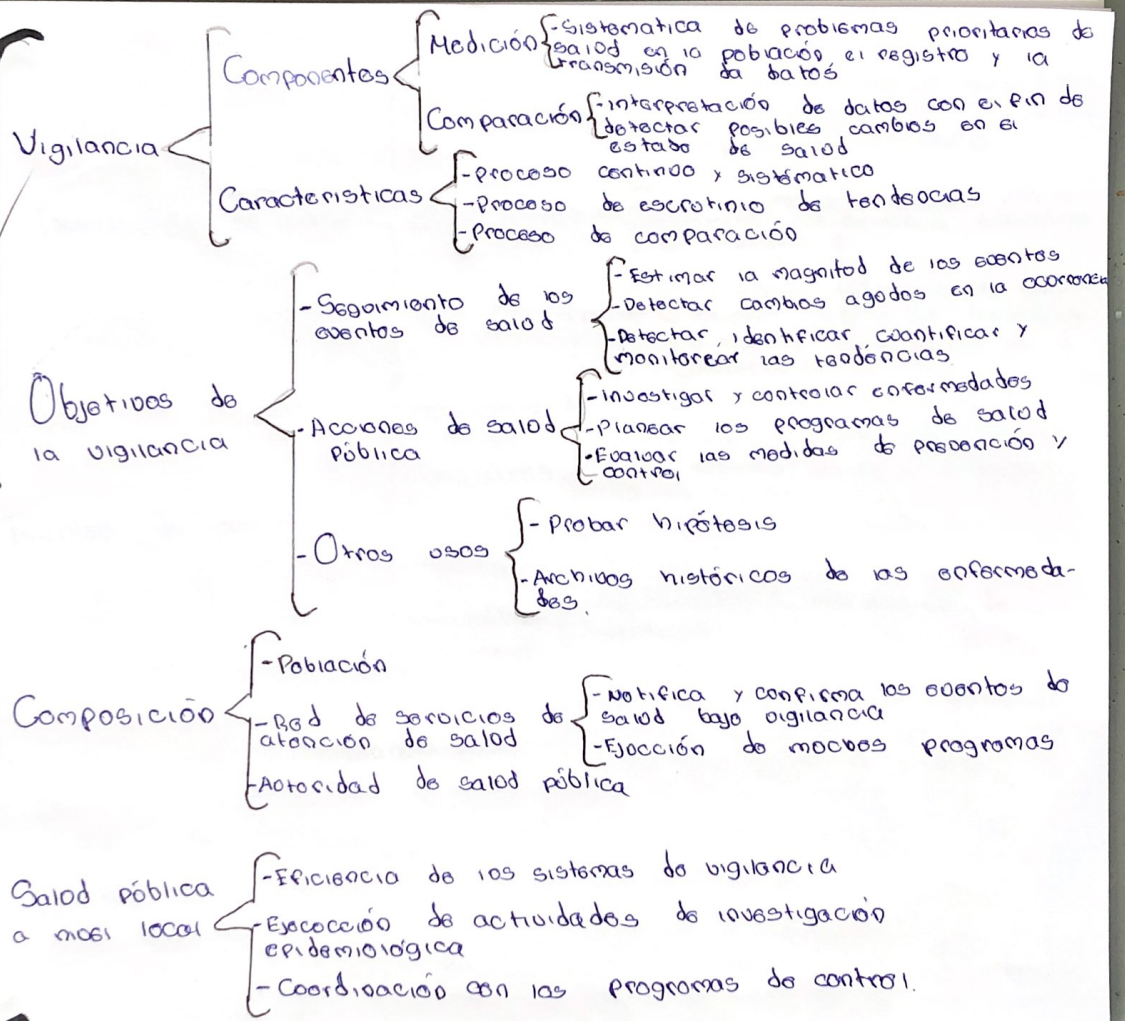 Vigilancia
Componentes
Medición
-Sistematica de problemas prioritarias de
salud en la población el registro y la
transmisión da datos
Comparación
-interpretación de datos con el fin de
detectar posibles cambios en el
estado de salud
Caracteristicas
-Proceso continuo y sistématico
-Proceso de escrutinio de tendencias
-Proceso de comparación
Objetivos de
la vigilancia
-Seguimiento de los
eventos de salud
-Estimar la magnitud de los eventos
-Detectar cambios agudos en la ocurrencia
-Detectar, identificar, cuantificar y
monitorear las tendencias
-Acciones de salud
pública
-Investigar y controlar enfermedades
-Planear los programas de salud
-Evaluar las medidas de prevención y
control
-Otros usos
-Probar hipótesis
-Archivos históricos de las enfermeda-
des.
Composición
-Población
-Red de servicios de
atención de salud
-Notifica y confirma los eventos de
salud bajo vigilancia
-Ejucción de muchos programas
-Autoridad de salud pública
Salud pública
a nivel local
-Eficiencia de los sistemas de vigilancia
-Ejecucción de actividades de investigación
epidemiológica
-Coordinación con los programas de control.